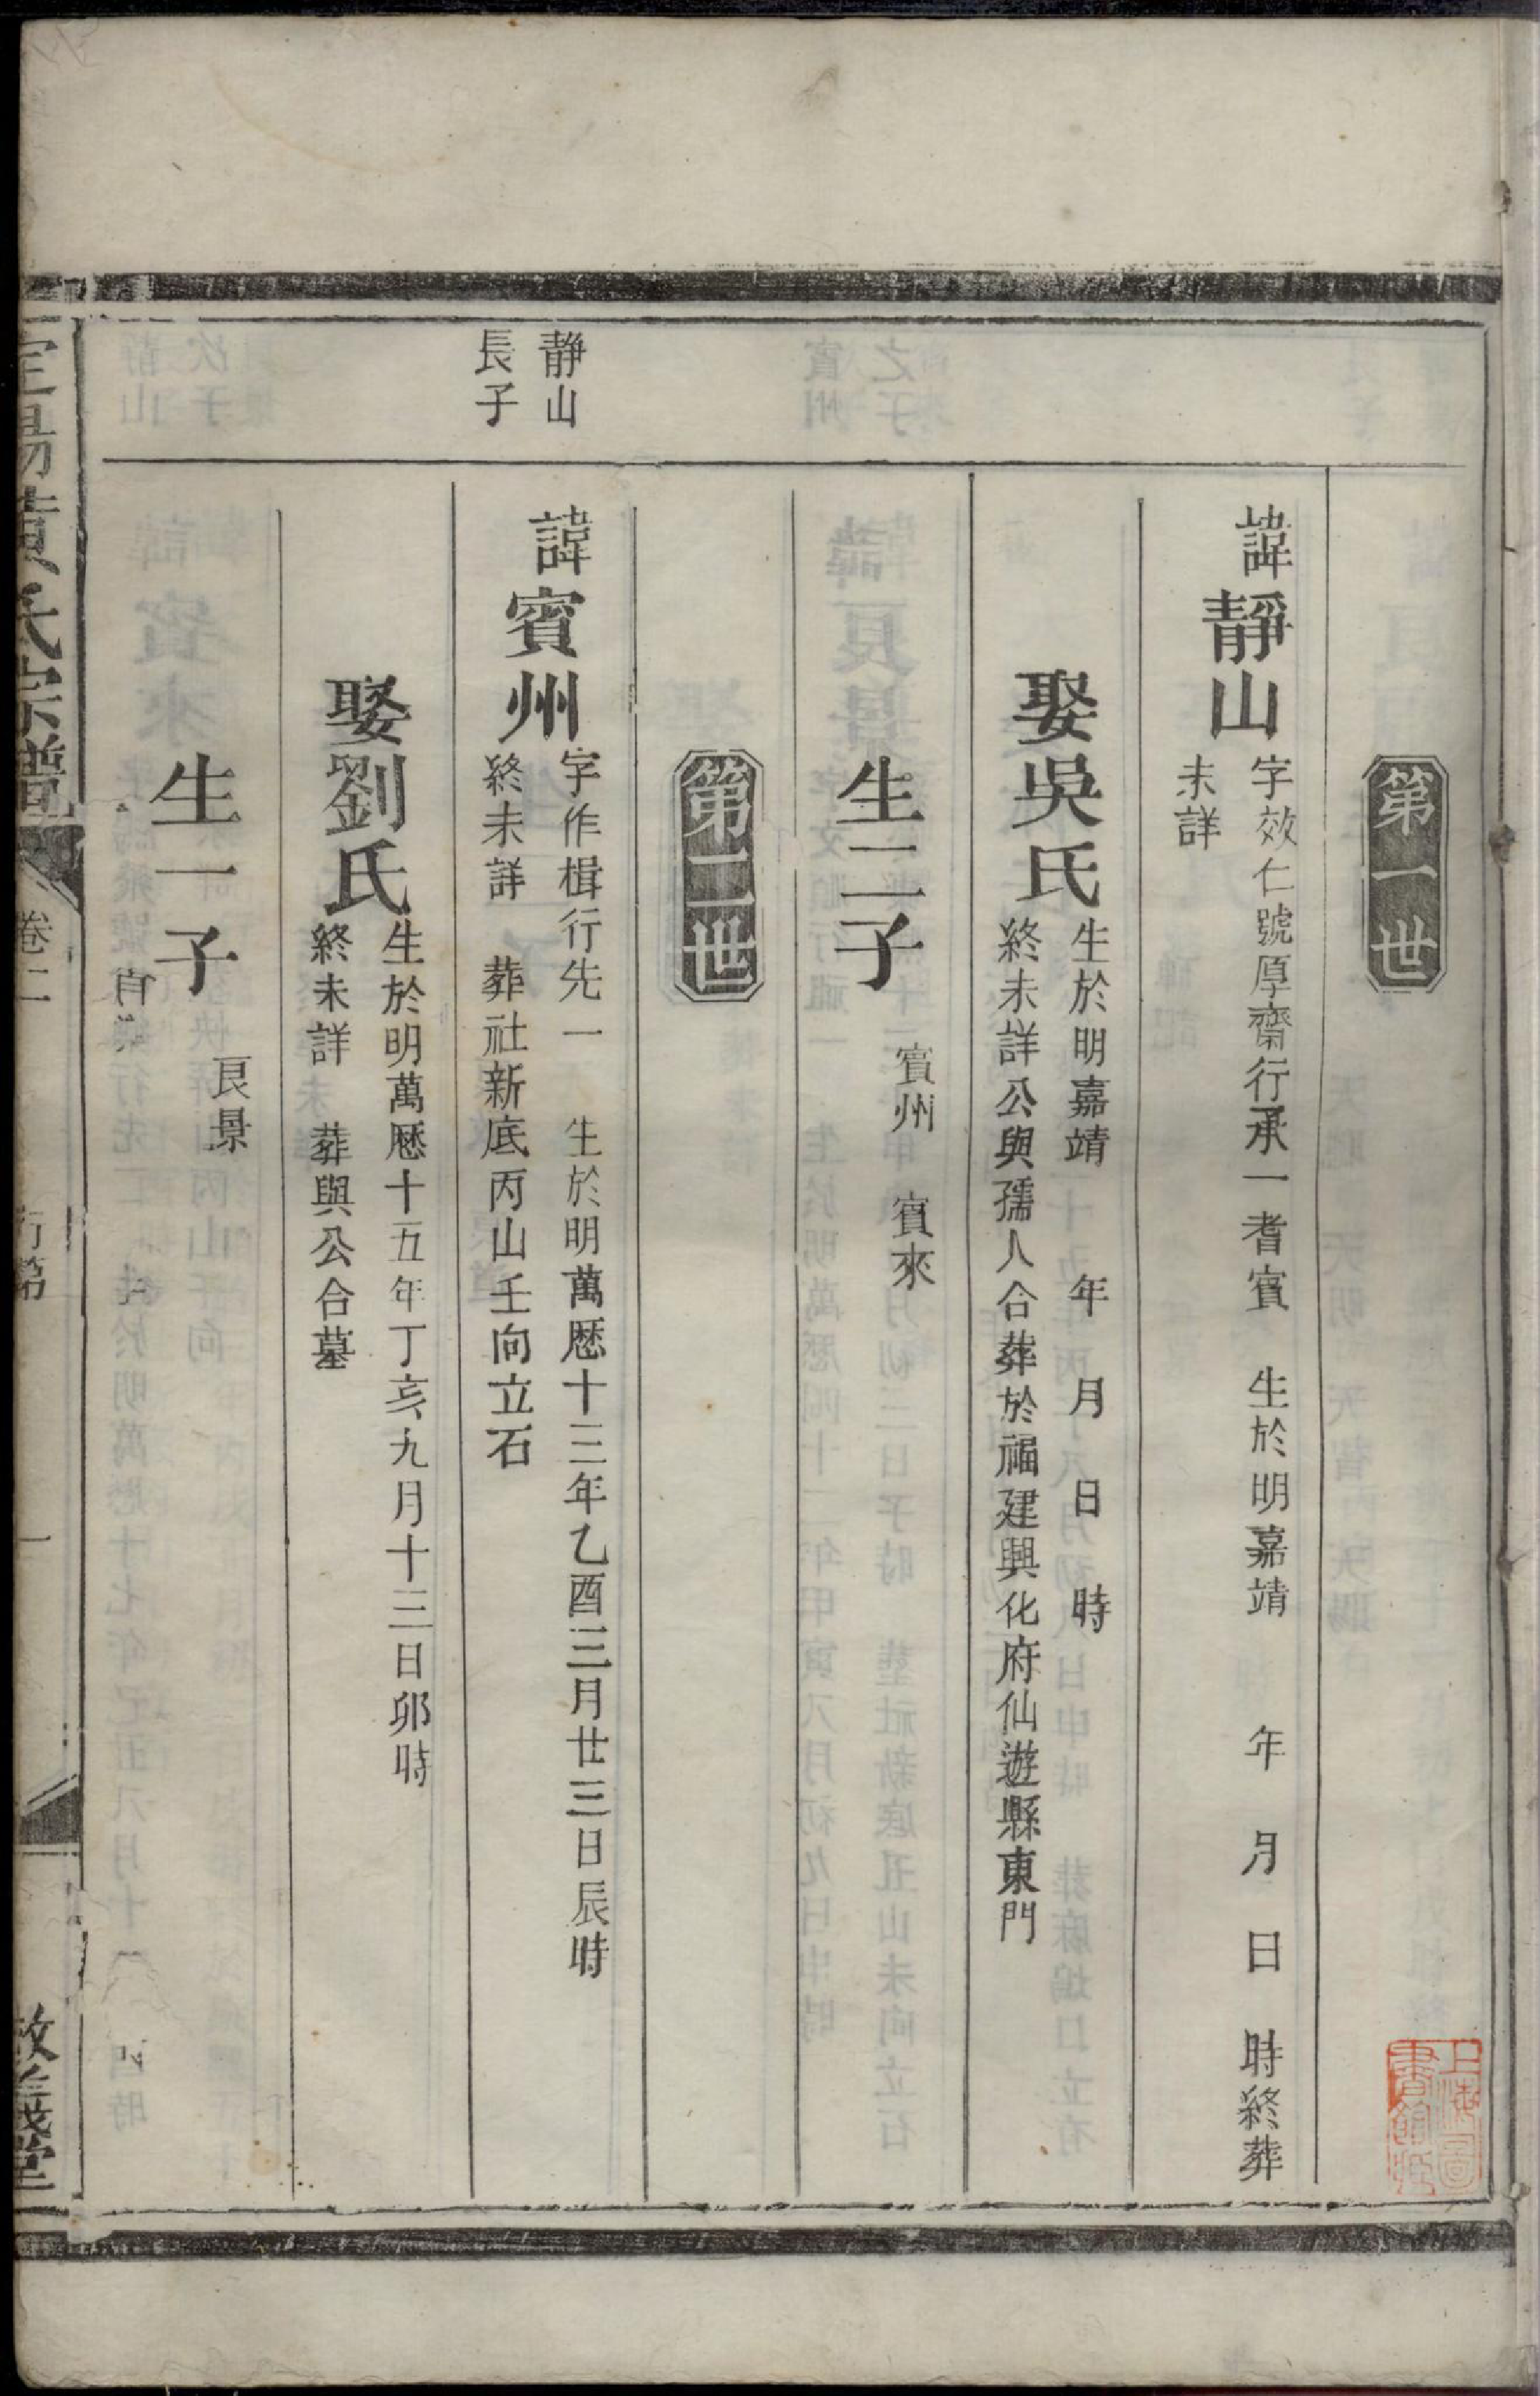 第一世
諱靜山
字效仁號厚齋行承一耆賓 生於明嘉靖 年 月 日 時終葬
未詳
娶吳氏
生於明嘉靖 年 月 日 時
終未詳公與孺人合葬於福建興化府仙遊縣東門
生二子
賓州 賓來
第二世
靜山
長子
諱賓州
字作楫行先一 生於明萬厯十三年乙酉三月廿三日辰時
終未詳 葬社新底丙山壬向立石
娶劉氏
生於明萬厯十五年丁亥九月十三日卯時
終未詳 葬與公合墓
生一子
艮景
定陽黃氏宗譜
卷二
行第
一
敘義堂
上海圖
書館藏